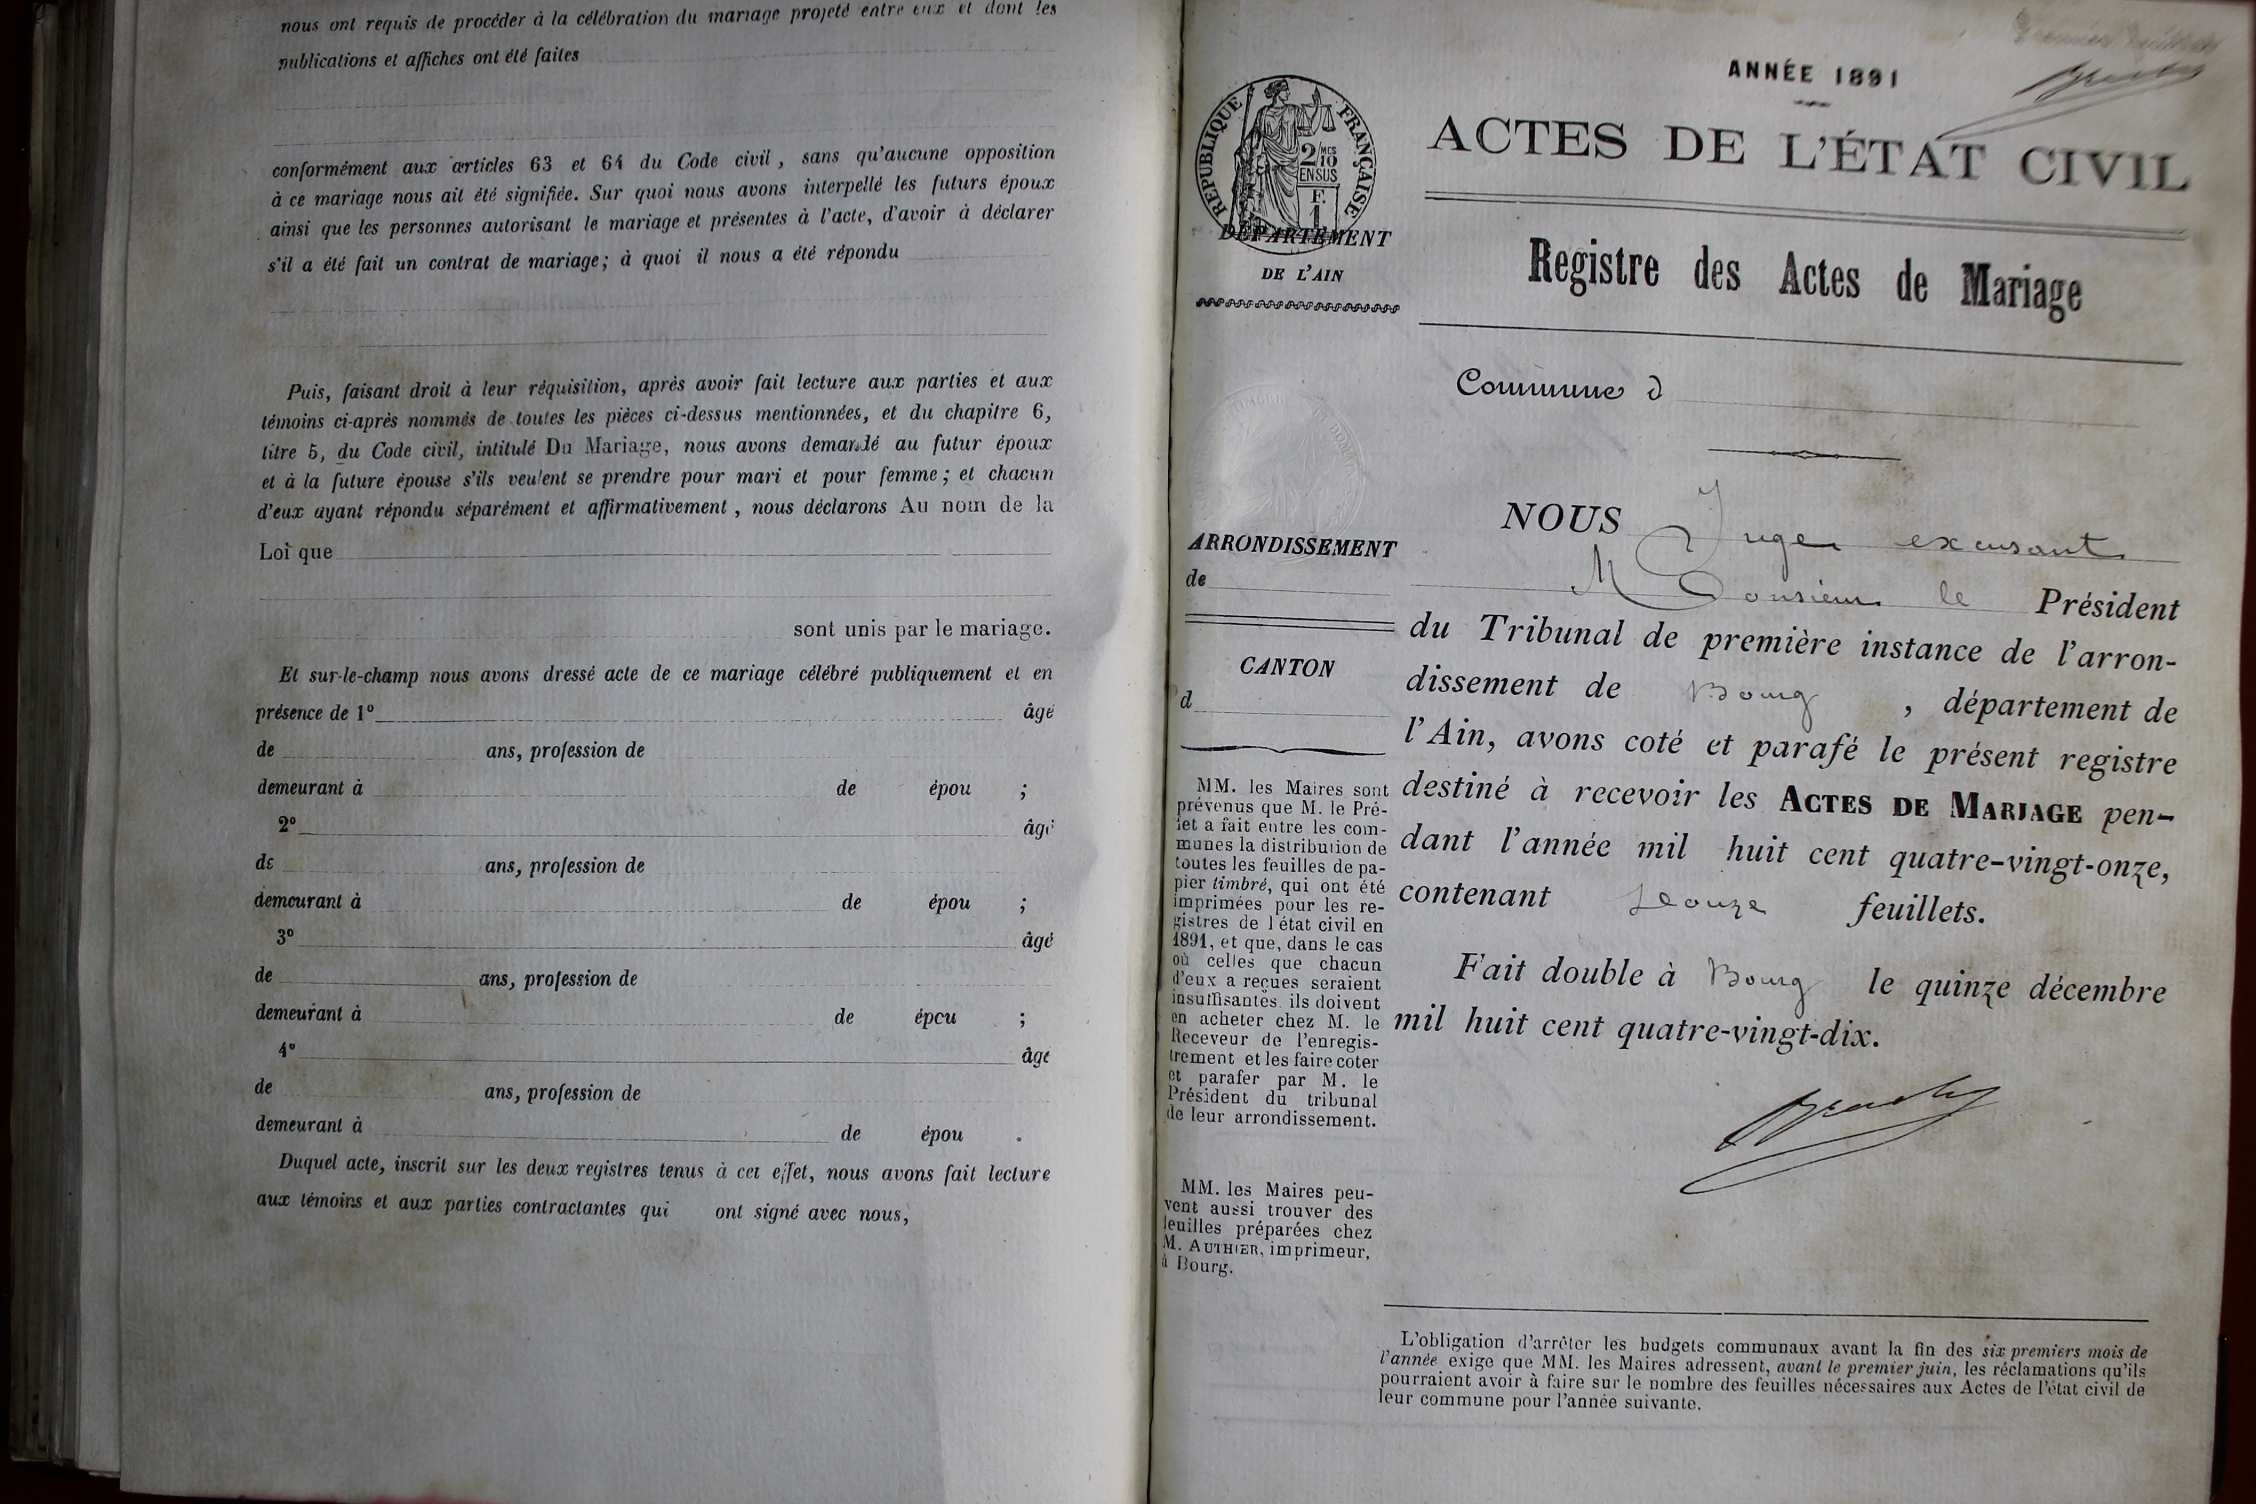 nous ont requis de procéder à la célébration du mariage projeté entre eux et dont les
publications et affiches ont été faites
conformément aux articles 63 et 64 du Code civil, sans qu'aucune opposition
à ce mariage nous ait été signifiée. Sur quoi nous avons interpellé les futurs époux
ainsi que les personnes autorisant le mariage et présentes à l'acte, d'avoir à déclarer
s'il a été fait un contrat de mariage; à quoi il nous a été répondu
Puis, faisant droit à leur réquisition, après avoir fait lecture aux parties et aux
témoins ci-après nommés de toutes les pièces ci-dessus mentionnées, et du chapitre 6,
titre 5, du Code civil, intitulé Du Mariage, nous avons demandé au futur époux
et à la future épouse s'ils veulent se prendre pour mari et pour femme; et chacun
d'eux ayant répondu séparément et affirmativement, nous déclarons Au nom de la
Loi que
sont unis par le mariage.
Et sur-le-champ nous avons dressé acte de ce mariage célébré publiquement et en
présence de 1° âgé
de ans, profession de
demeurant à de épou ;
2° âgé
de ans, profession de
demeurant à de épou ;
3° âgé
de ans, profession de
demeurant à de épou ;
4° âgé
de ans, profession de
demeurant à de épou .
Duquel acte, inscrit sur les deux registres tenus à cet effet, nous avons fait lecture
aux témoins et aux parties contractantes qui ont signé avec nous,
ANNÉE 1891
ACTES DE L'ÉTAT CIVIL
RÉPUBLIQUE FRANÇAISE
2/10 MES
EN SUS
F.
1
DÉPARTEMENT
DE L'AIN
Registre des Actes de Mariage
Commune d
ARRONDISSEMENT
de
CANTON
d
MM. les Maires sont
prévenus que M. le Pré-
fet a fait entre les com-
munes la distribution de
toutes les feuilles de pa-
pier timbré, qui ont été
imprimées pour les re-
gistres de l'état civil en
1891, et que, dans le cas
où celles que chacun
d'eux a reçues seraient
insuffisantes ils doivent
en acheter chez M. le
Receveur de l'enregis-
trement et les faire coter
et parafer par M. le
Président du tribunal
de leur arrondissement.
MM. les Maires peu-
vent aussi trouver des
feuilles préparées chez
M. AUTHIER, imprimeur,
à Bourg.
NOUS Juge excusant
Monsieur le Président
du Tribunal de première instance de l'arron-
dissement de Bourg , département de
l'Ain, avons coté et parafé le présent registre
destiné à recevoir les ACTES DE MARIAGE pen-
dant l'année mil huit cent quatre-vingt-onze,
contenant feuillets.
Fait double à Bourg le quinze décembre
mil huit cent quatre-vingt-dix.
L'obligation d'arrêter les budgets communaux avant la fin des six premiers mois de
l'année exige que MM. les Maires adressent, avant le premier juin, les réclamations qu'ils
pourraient avoir à faire sur le nombre des feuilles nécessaires aux Actes de l'état civil de
leur commune pour l'année suivante.